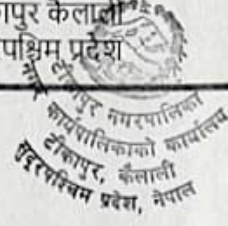 पुर कैलाली
पश्चिम प्रदेश
टीकापुर नगरपालिका
नगर कार्यपालिकाको कार्यालय
टीकापुर, कैलाली
सुदूरपश्चिम प्रदेश, नेपाल